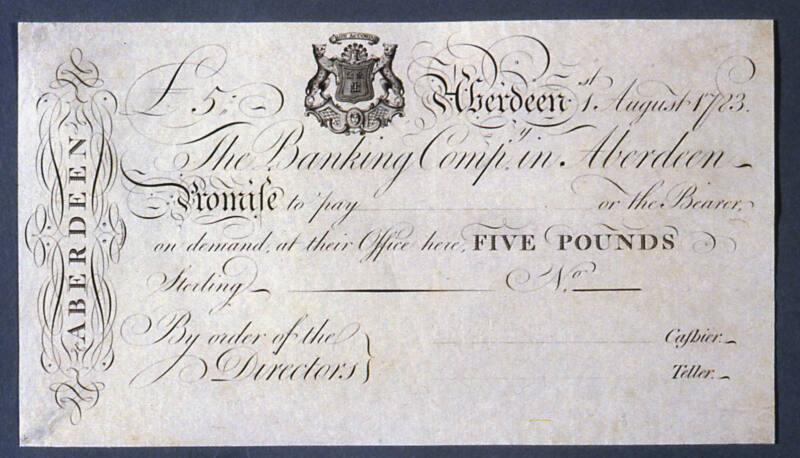 BON ACCORD
£5:
Aberdeen 1st August 1783.
The Banking Compy. in Aberdeen
Promiſe to pay or the Bearer,
on demand, at their Office here, FIVE POUNDS
Sterling No.
By order of the
Directors
Caſhier.
Teller.
ABERDEEN